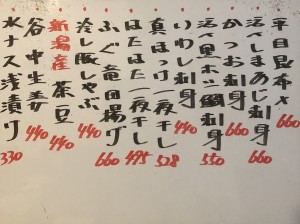 平目昆布〆 660
活〆しまあじ刺身 660
かつお刺身 660
活〆黒ホゴ鯛刺身 550
いわし刺身 440
真ほっけ一夜干し 528
はたはた一夜干し 495
ふぐ竜田揚げ 660
冷し豚しゃぶ 440
新潟産 茶豆 440
谷中生姜 440
水ナス浅漬け 330